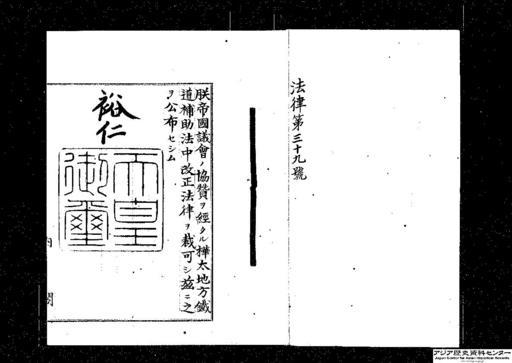 法律第三十九號
朕帝國議會ノ協贊ヲ經タル樺太地方鐵
道補助法中改正法律ヲ裁可シ茲ニ之
ヲ公布セシム
裕仁
天皇
御璽
内閣
アジア歴史資料センター
Japan Center for Asian Historical Records